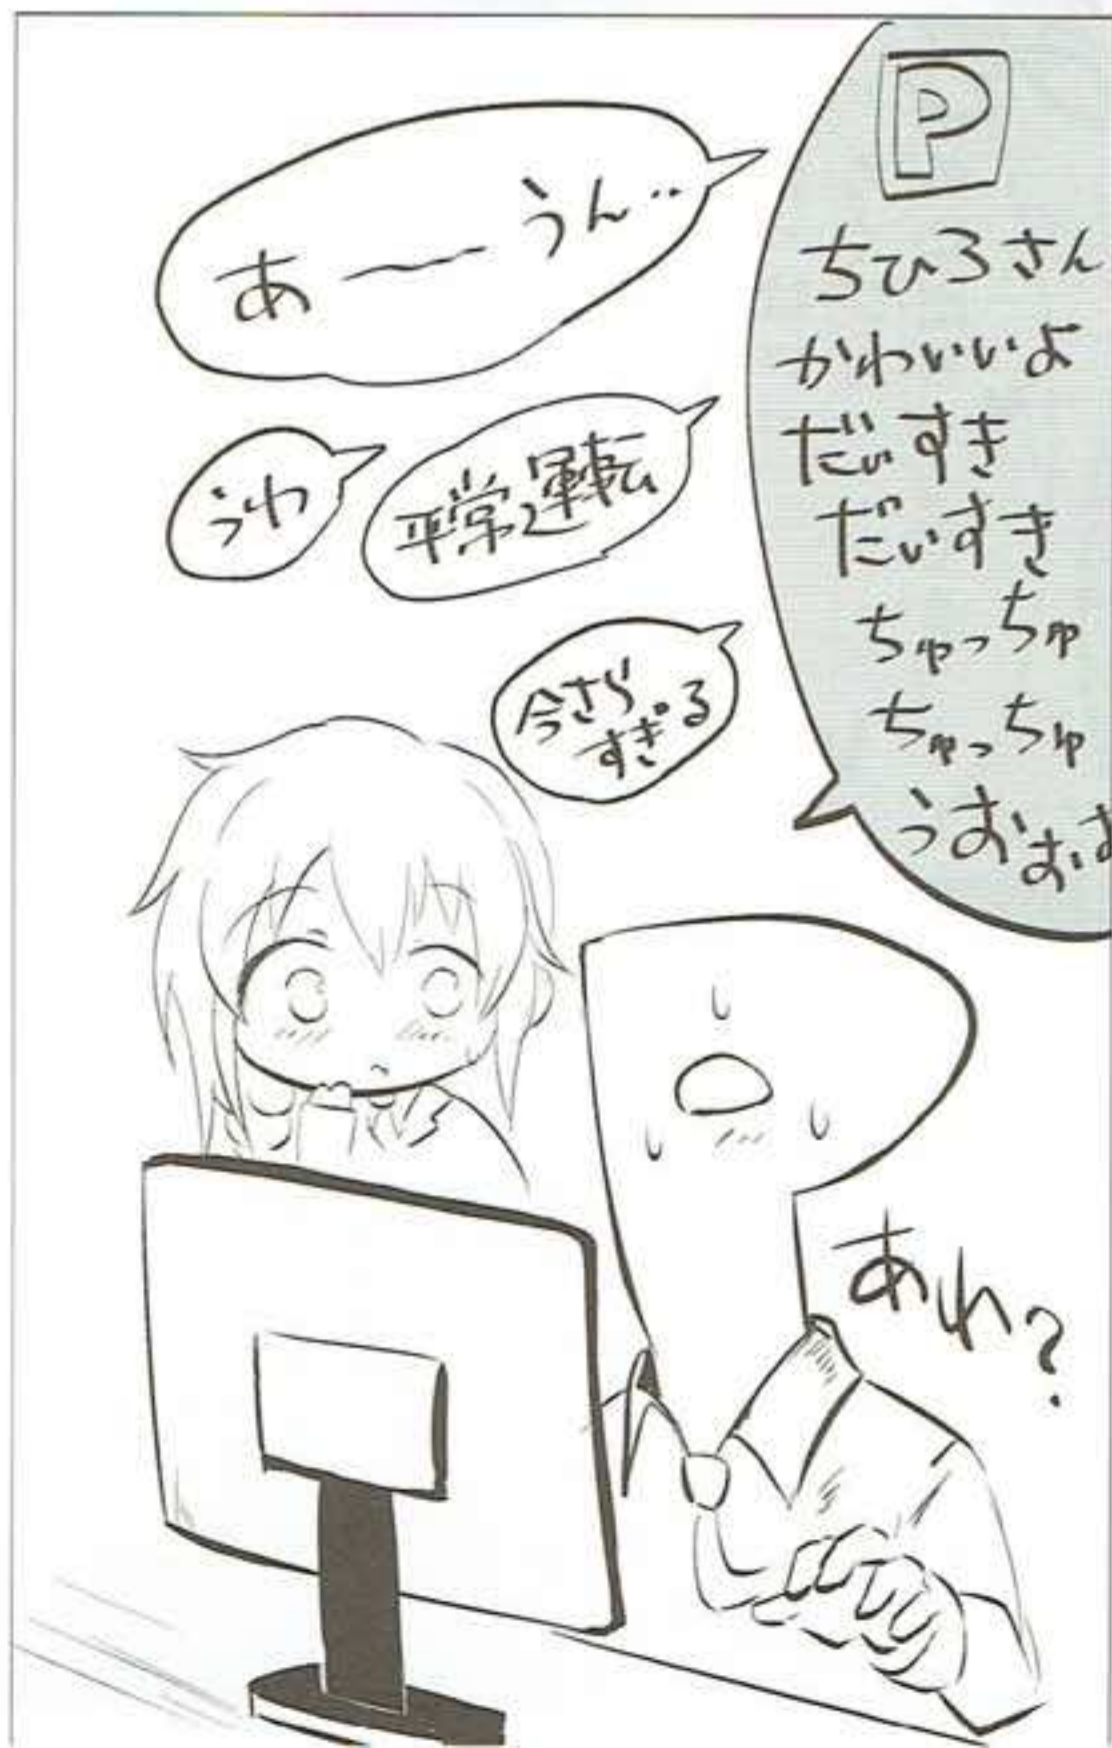 P
ちひろさん
かわいいよ
だいすき
だいすき
ちゅっちゅ
ちゅっちゅ
うおおお
あー うん‥
平常運転
うわ
今さら
すぎる
あれ?